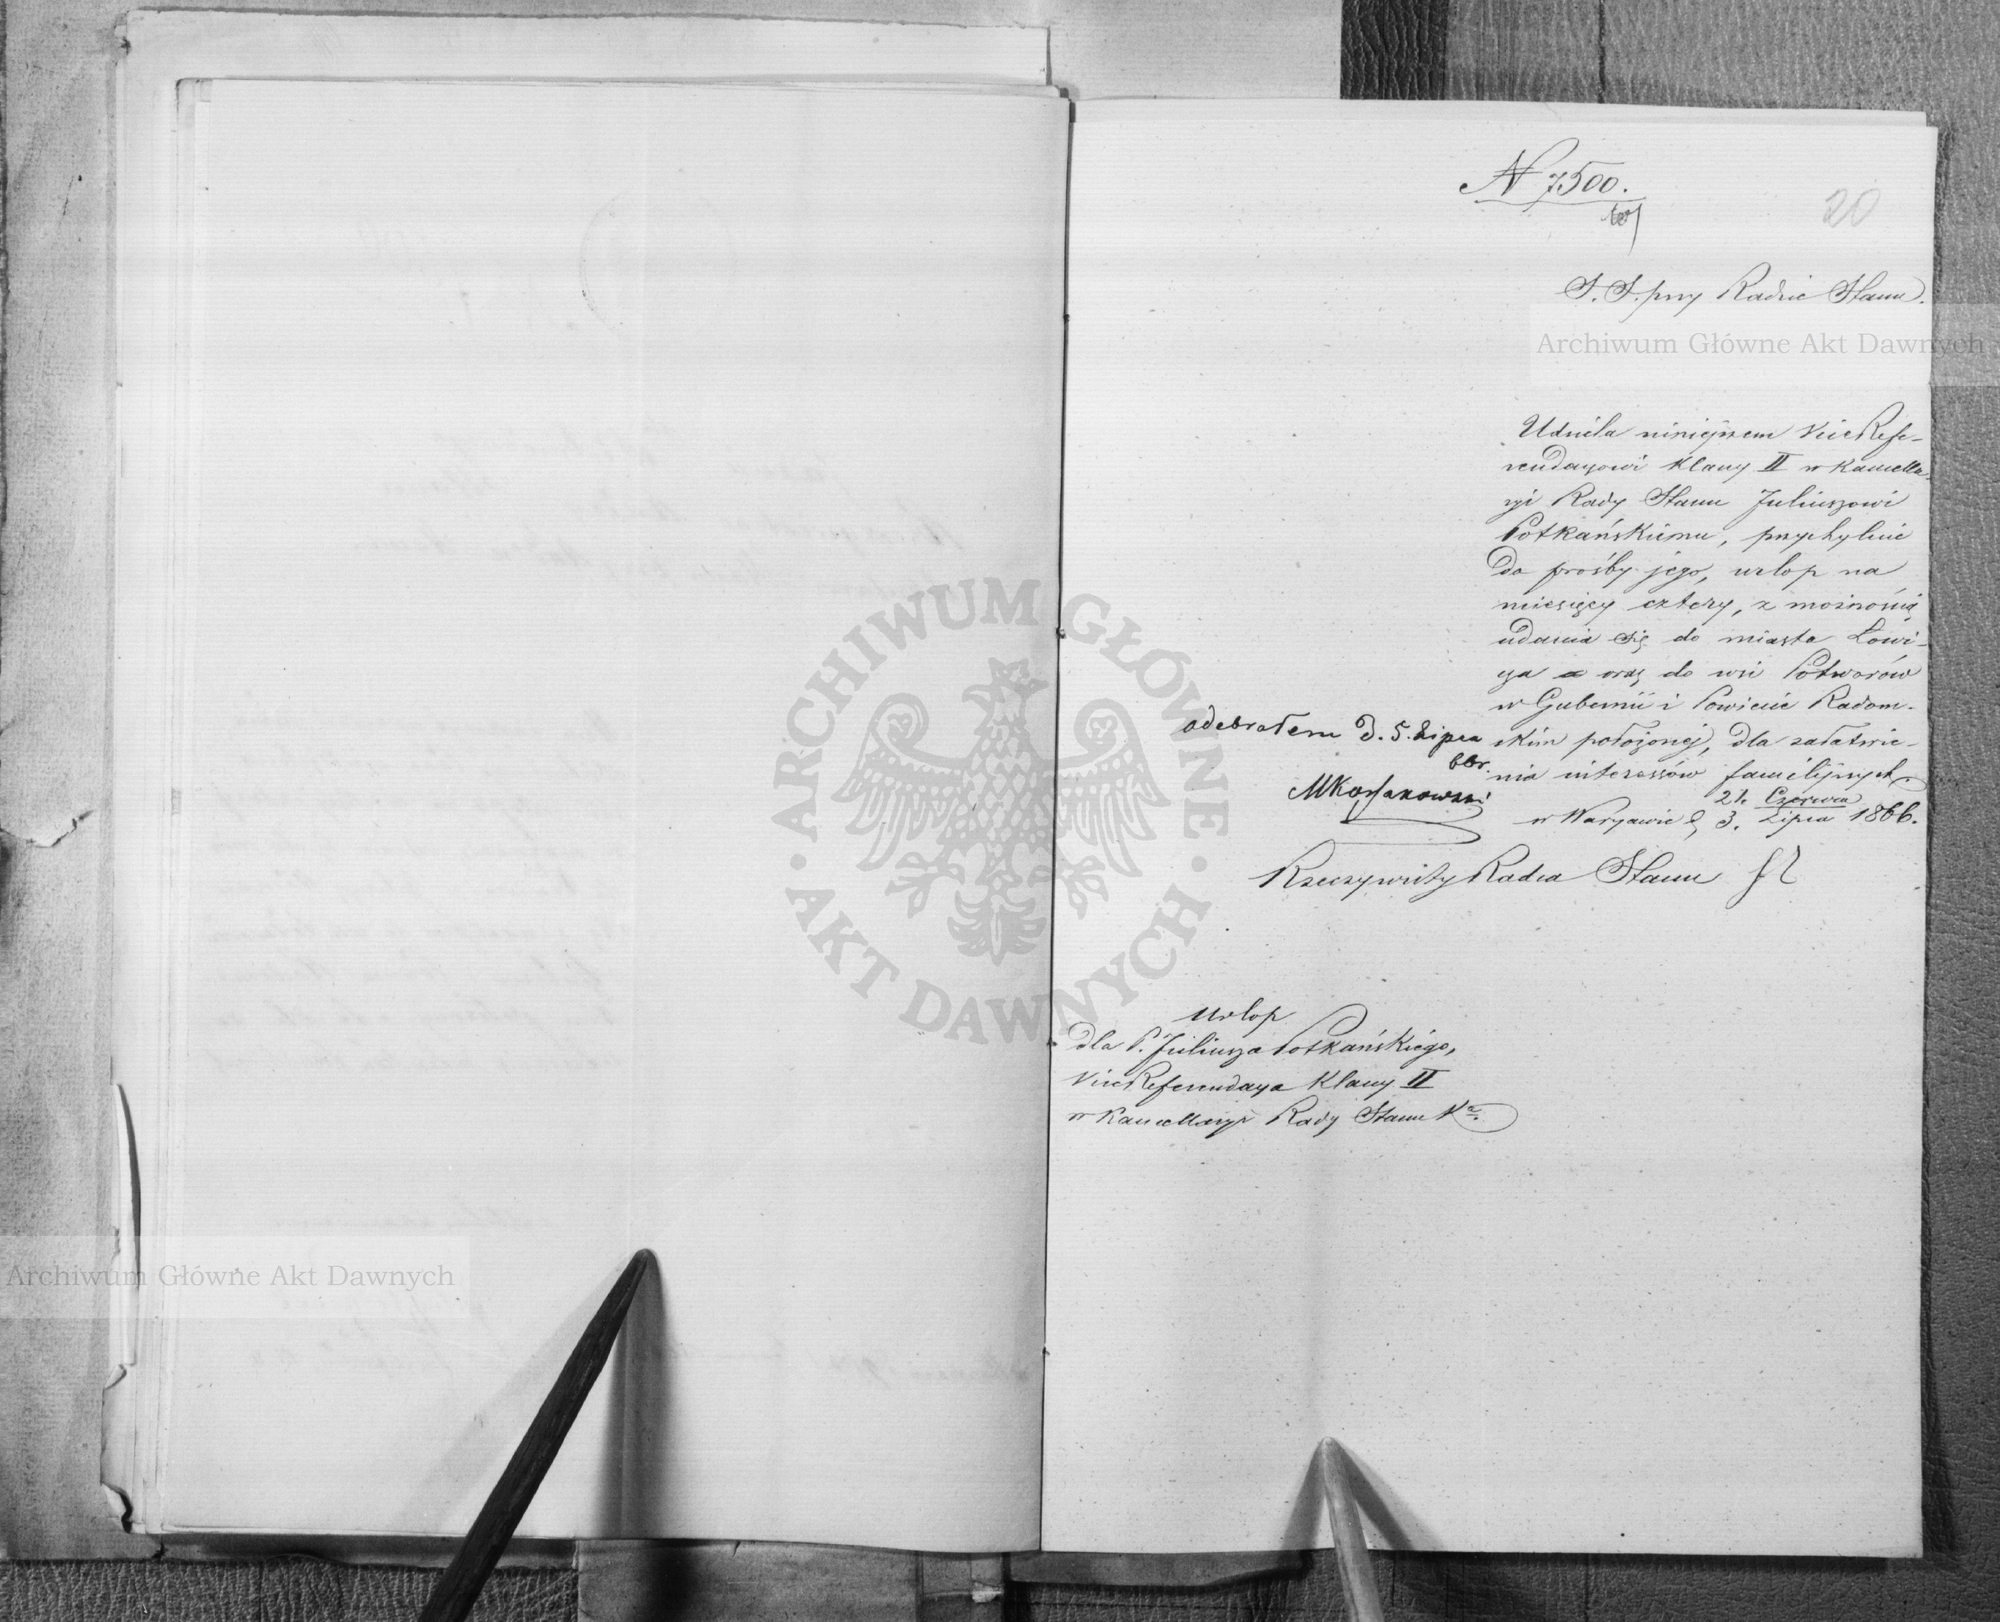 N 7500.
20
S. S. przy Radzie Stanu.
Archiwum Główne Akt Dawnych
Udziela niniejszem Vice Refe-
rendarzowi Klassy II w Kancella-
ryi Rady Stanu Juliuszowi
Potkańskiemu, przychylnie
do prośby jego, urlop na
miesięcy cztery, z możnością
udania się do miasta Łowi-
cza a oraz do wsi Potworów
w Gubernii i Powiecie Radom-
skim położonej, dla załatwie-
nia interessów familijnych
w Warszawie d. 21. Czerwca / 3. Lipca 1866.
odebrałem d. 5. Lipca
66r.
MKossakowski
Rzeczywisty Radca Stanu
Urlop
dla P. Juliusza Potkańskiego,
Vice Referendarza Klassy II
w Kancellaryi Rady Stanu
ARCHIWUM GŁÓWNE AKT DAWNYCH
Archiwum Główne Akt Dawnych